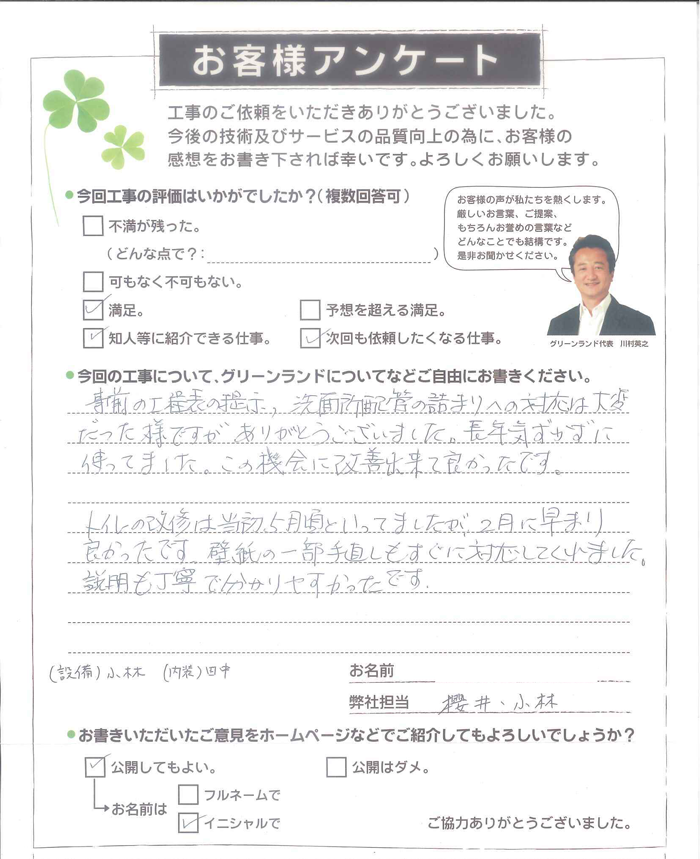 お客様アンケート
工事のご依頼をいただきありがとうございました。
今後の技術及びサービスの品質向上の為に、お客様の
感想をお書き下されば幸いです。よろしくお願いします。
●今回工事の評価はいかがでしたか？(複数回答可)
お客様の声が私たちを熱くします。
厳しいお言葉、ご提案、
もちろんお誉めの言葉など
どんなことでも結構です。
是非お聞かせください。
不満が残った。
(どんな点で?: )
可もなく不可もない。
満足。 予想を超える満足。
知人等に紹介できる仕事。 次回も依頼したくなる仕事。
グリーンランド代表 川村英之
●今回の工事について、グリーンランドについてなどご自由にお書きください。
事前の工程表の提示、洗面所配管の詰まりへの対応は大変
だった様ですがありがとうございました。長年気ずかずに
使ってました。この機会に改善出来て良かったです。
トイレの改修は当初5月頃といってましたが、2月に早まり
良かったです 壁紙の一部手直しもすぐに対応してくれました。
説明も丁寧で分かりやすかったです.
(設備)小林 (内装)田中
お名前
弊社担当 櫻井・小林
●お書きいただいたご意見をホームページなどでご紹介してもよろしいでしょうか？
公開してもよい。 公開はダメ。
お名前は
フルネームで
イニシャルで
ご協力ありがとうございました。